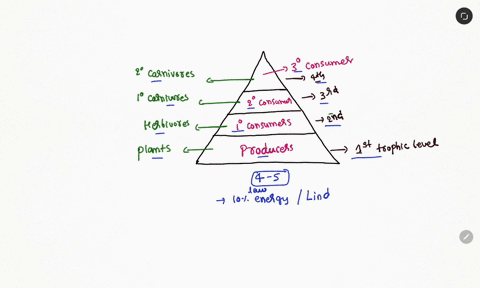 3° Consumer
2° Carnivores
4th
1° Carnivores
2° Consumer
3rd
Herbivores
1° Consumers
2nd
plants
Producers
1st trophic level
4-5
law
→ 10% energy / Lind